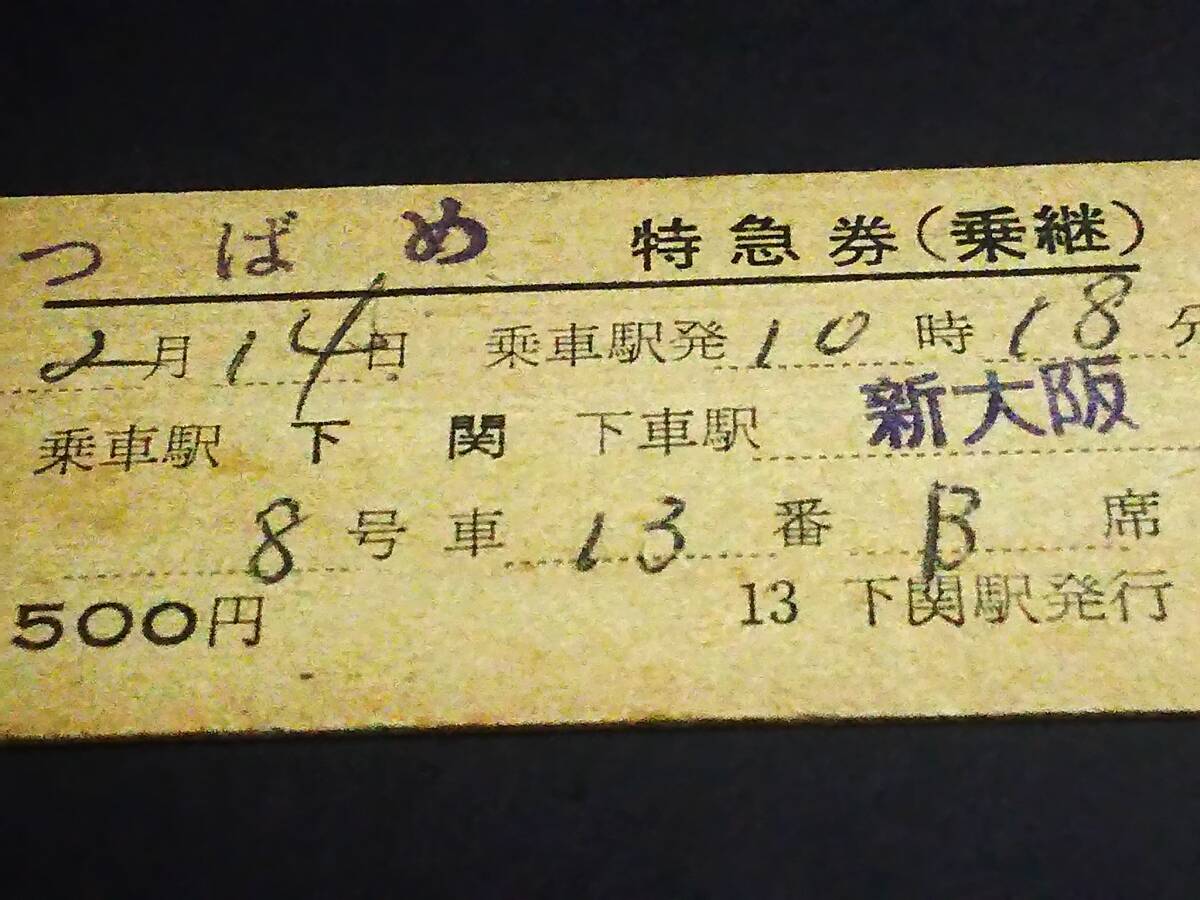 つばめ 特急券(乗継)
2月14日 乗車駅発10時18分
乗車駅 下関 下車駅 新大阪
8号車 13番 B席
500円 13 下関駅発行